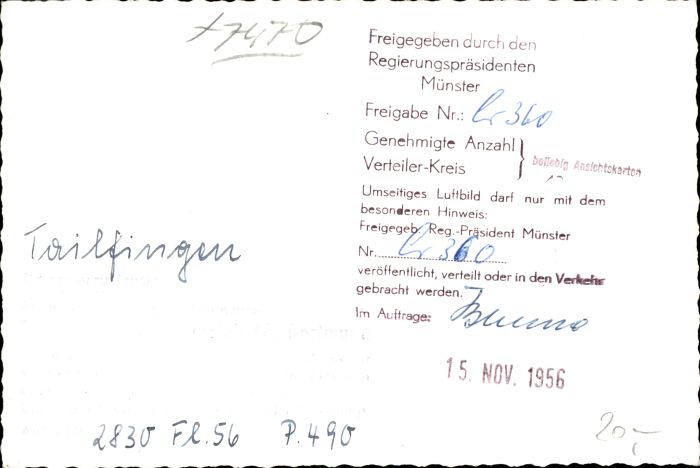 +7470
Freigegeben durch den
Regierungspräsidenten
Münster
Freigabe Nr.: Cr 360
Genehmigte Anzahl
Verteiler-Kreis
beliebig Ansichtskarten
Umseitiges Luftbild darf nur mit dem
besonderen Hinweis:
Freigegeb. Reg.-Präsident Münster
Nr. Cr 360
veröffentlicht, verteilt oder in den Verkehr
gebracht werden.
Im Auftrage:
15. NOV. 1956
Tailfingen
2830 Fl. 56 P. 490
20,-